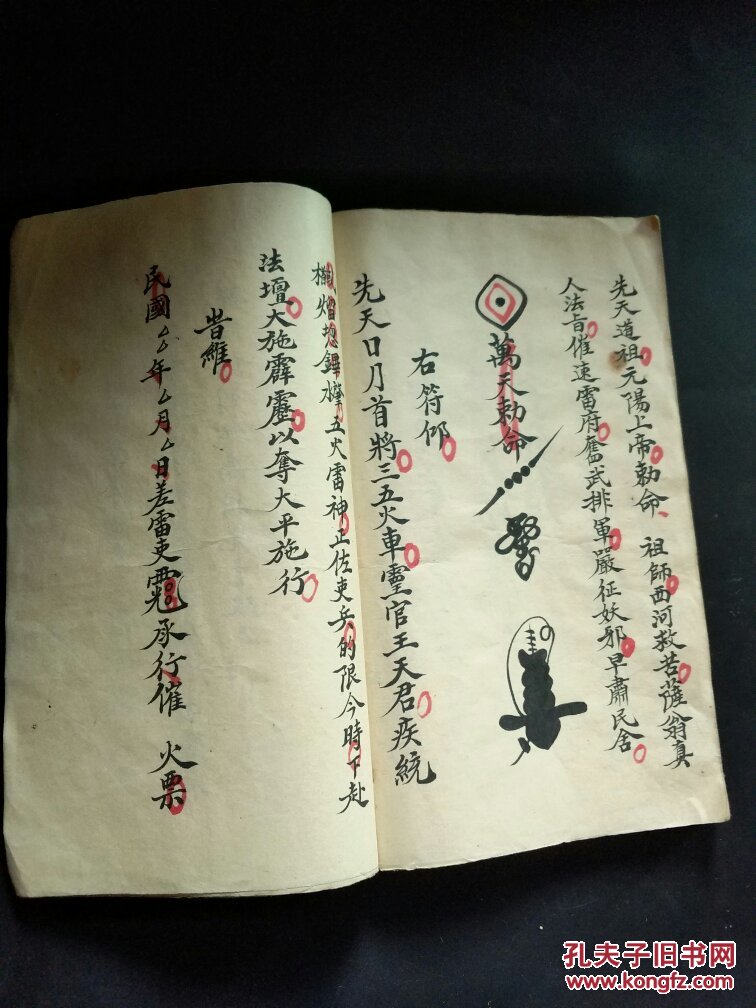 先天道祖元陽上帝勅命 祖師西河救苦薩翁真
人法旨催速雷府奮武排軍嚴征妖邪早肅民舍
萬天勅命
右符仰
先天日月首將三五火車靈官王天君疾統
五火雷神正佐吏兵的限今時下赴
法壇大施霹靂以奪大平施行
昔維
民國厶年厶月厶日差雷吏 承行催 火票
孔夫子旧书网
www.kongfz.com